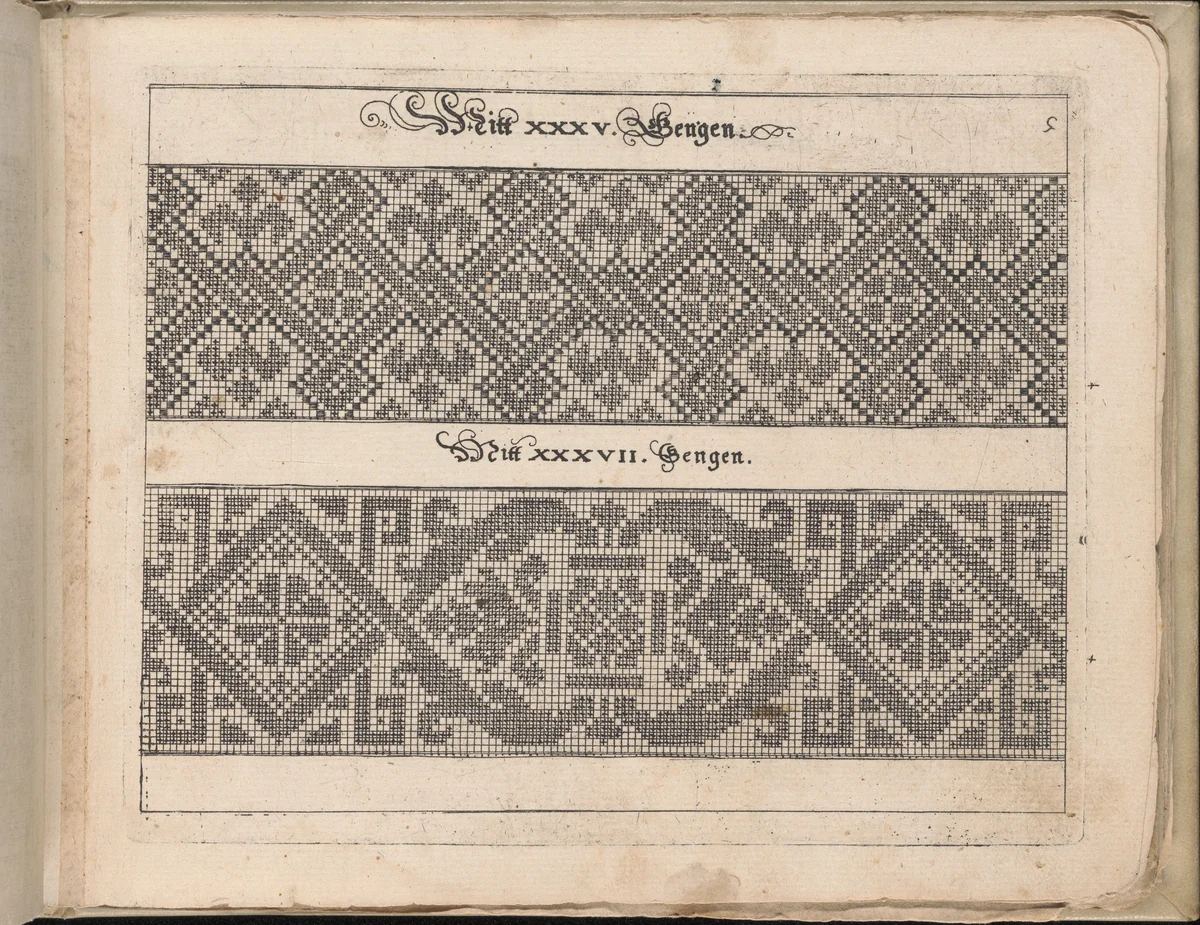 Mitt XXXV. Gengen.
5
Mitt XXXVII. Gengen.